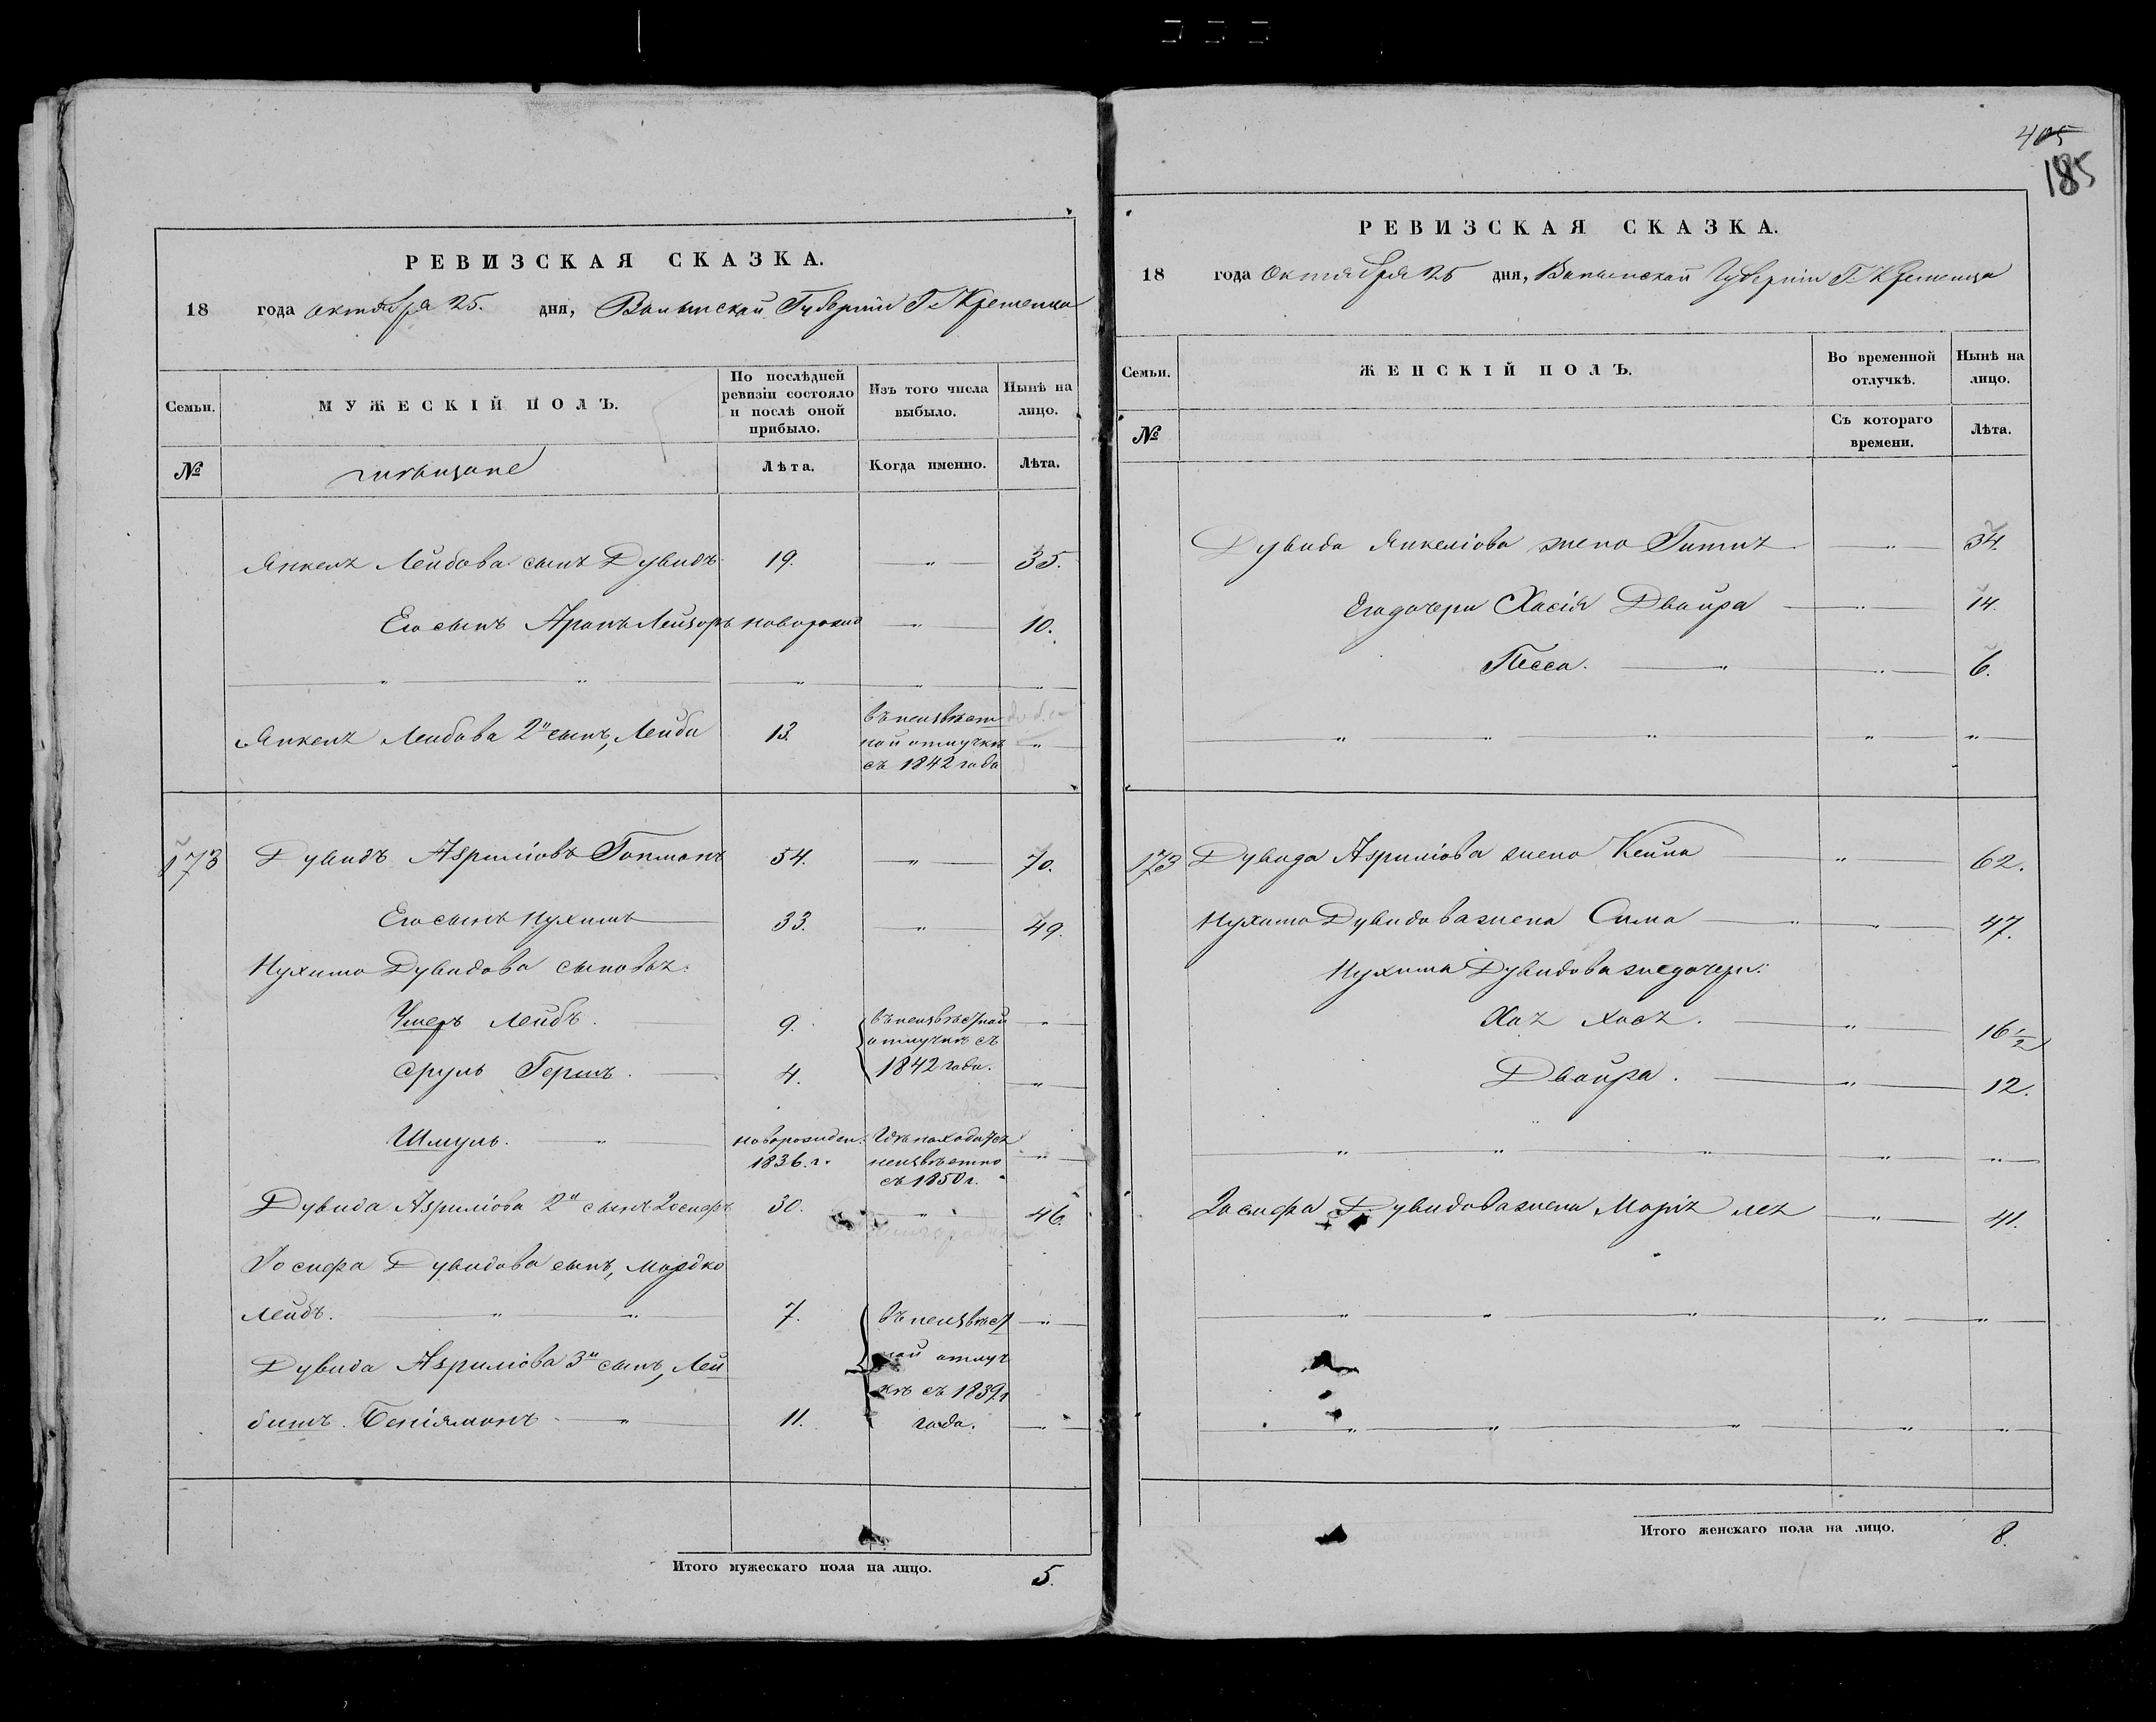 405
185
РЕВИЗСКАЯ СКАЗКА.
18 года октября 25. дня, Волынской Губернiи Г. Кременца
Семьи.
МУЖЕСКIЙ ПОЛЪ.
По послѣдней ревизiи состояло и послѣ оной прибыло.
Изъ того числа выбыло.
Нынѣ на лицо.
№
Лѣта.
Когда именно.
Лѣта.
Янкель Лейбова сынъ Дувидъ 19. " 35.
Его сынъ Аронъ Лейзоръ новорожд " 10.
Янкель Лейбова 2й сынъ, Лейба 13. въ неизвѣст
ной отлучкѣ "
съ 1842 года
173 Дувидъ Авриміовъ Гопманъ 54. " 70.
Его сынъ Нухимъ 33. " 49.
Нухима Дувидова сыновья:
Ушеръ Лейбъ. 9. въ неизвѣстной "
отлучкѣ съ
Сруль Гершъ. 4. 1842 года. "
Шмуль. " новорожден. Гдѣ находится
1836. г. неизвѣстно "
съ 1850 г.
Дувида Авриміова 2й сынъ Іосифъ 30. " 46.
Іосифа Дувидова сынъ, Мордко
Лейбъ. " " 7. въ неизвѣст "
Дувида Авриміова 3й сынъ, Лей ной отлуч
кѣ съ 1839
бишъ Беніяминъ " 11. года. "
Итого мужескаго пола на лицо. 5.
РЕВИЗСКАЯ СКАЗКА.
18 года октября 25 дня, Волынской Губернiи Г. Кременца
Семьи.
ЖЕНСКIЙ ПОЛЪ.
Во временной отлучкѣ.
Нынѣ на лицо.
№
Съ котораго времени.
Лѣта.
Дувида Янкеліова жена Гитль " 34.
Его дочери Хасія Двойра " 14.
Песса. " " 6.
173 Дувида Авриміова жена Кейла " 62.
Нухима Дувидова жена Сима " " 47.
Нухима Дувидова же дочери:
Хая Хася. " 16 1/2
Двойра. " 12.
Іосифа Дувидова жена Марія лея " 41.
Итого женскаго пола на лицо. 8.